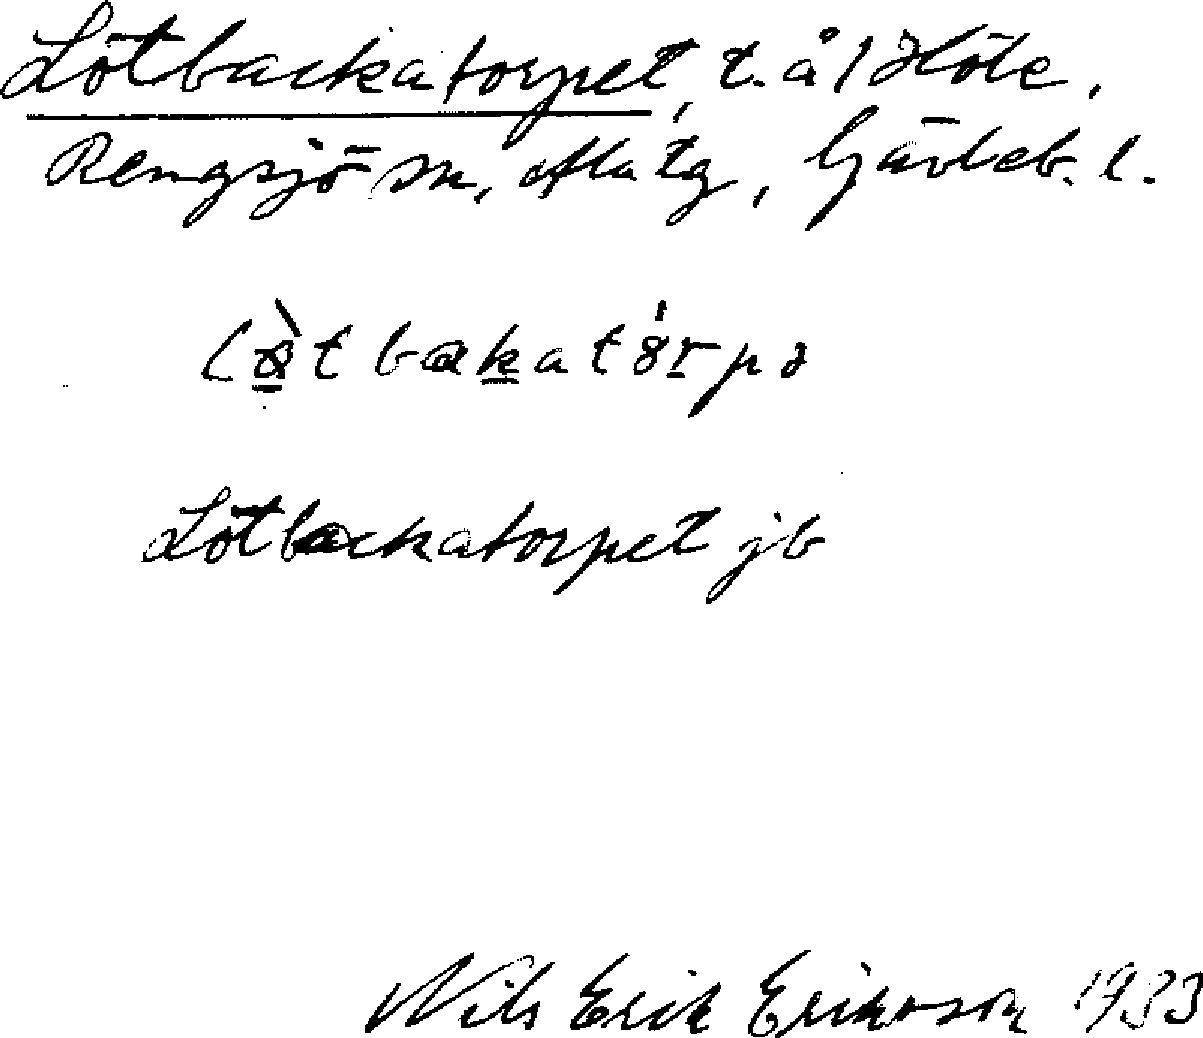 Lötbackatorpet, t. å / Höle,
Rengsjö sn, Ala tg, Gävleb. l.
Lötbackatorpet jb
Nils Erik Eriksson 1933